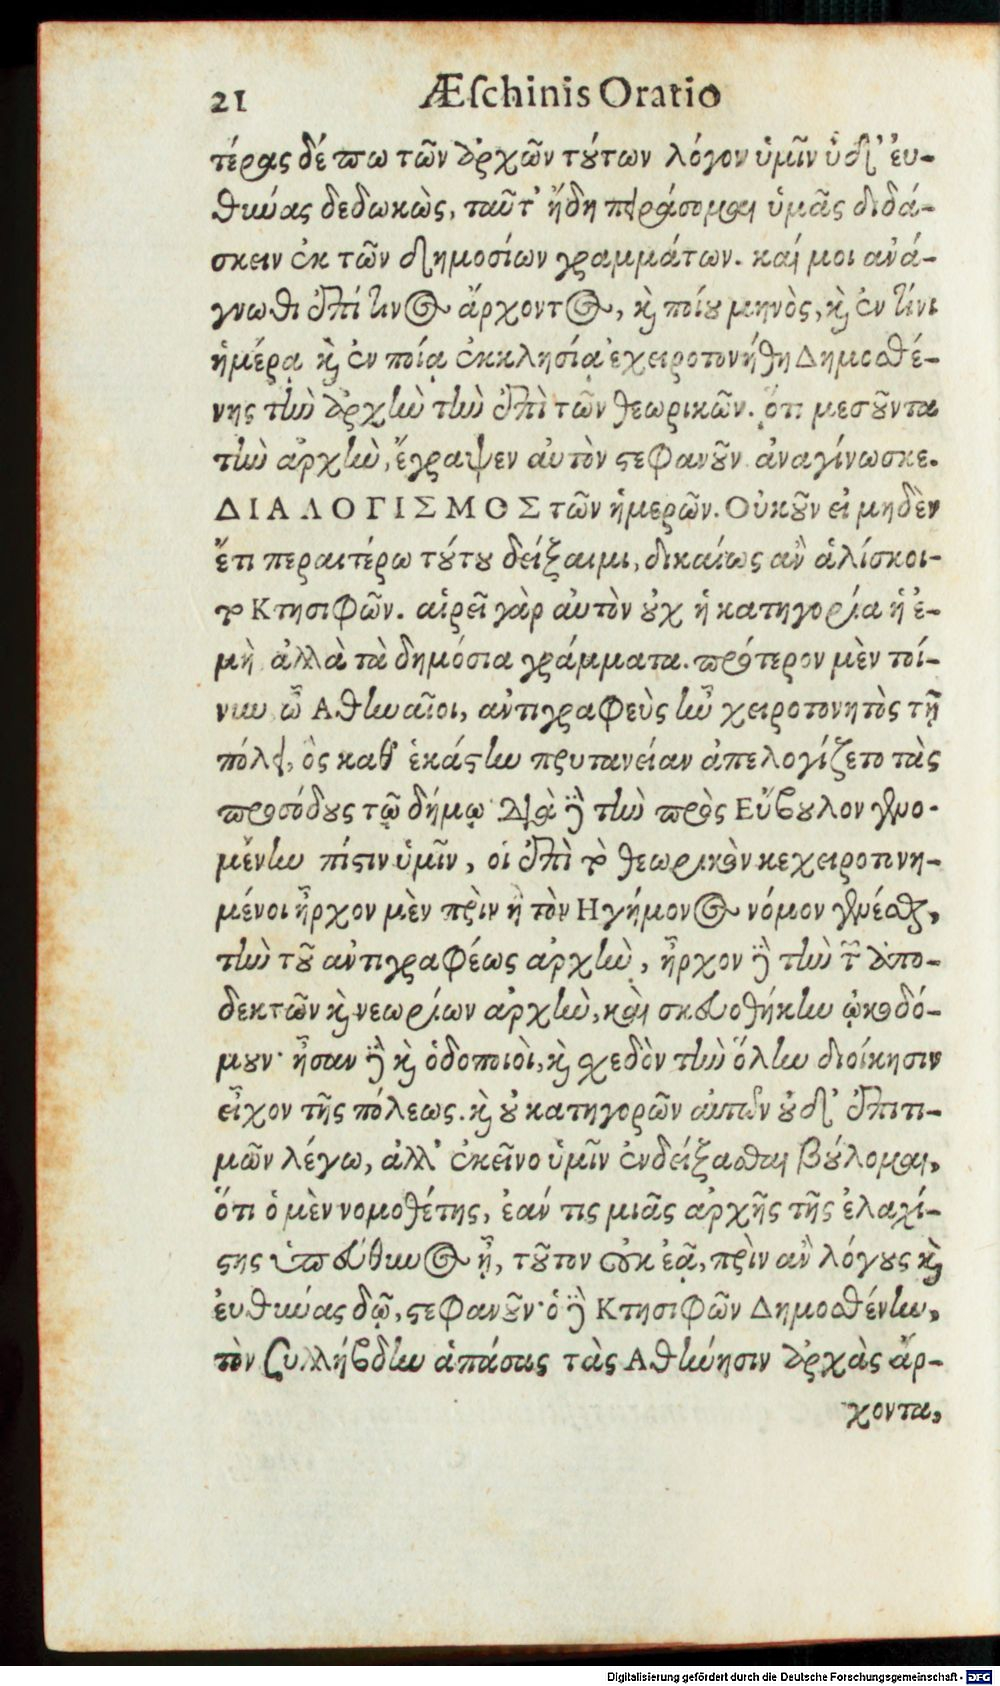 21 Æſchinis Oratio
τέρας δέ πω τῶν ἀρχῶν τούτων λόγον ὑμῖν οὐδ' εὐ-
θύνας δεδωκὼς, ταῦτ' ἤδη πειράσομαι ὑμᾶς διδά-
σκειν ἐκ τῶν δημοσίων γραμμάτων. καί μοι ἀνά-
γνωθι ἐπὶ τίνος ἄρχοντος, καὶ ποίου μηνὸς, καὶ ἐν τίνι
ἡμέρᾳ καὶ ἐν ποίᾳ ἐκκλησίᾳ ἐχειροτονήθη Δημοσθέ-
νης τὴν ἀρχὴν τὴν ἐπὶ τῶν θεωρικῶν. ὅτι μεσοῦντα
τὴν ἀρχὴν, ἔγραψεν αὐτὸν στεφανοῦν. ἀναγίνωσκε.
ΔΙΑΛΟΓΙΣΜΟΣ τῶν ἡμερῶν. Οὐκοῦν εἰ μηδὲν
ἔτι περαιτέρω τούτου δείξαιμι, δικαίως ἂν ἁλίσκοι-
το Κτησιφῶν. αἱρεῖ γὰρ αὐτὸν οὐχ ἡ κατηγορία ἡ ἐ-
μὴ ἀλλὰ τὰ δημόσια γράμματα. πρότερον μὲν τοί-
νυν ὦ Αθηναῖοι, ἀντιγραφεὺς ἦν χειροτονητὸς τῇ
πόλει, ὃς καθ' ἑκάστην πρυτανείαν ἀπελογίζετο τὰς
προσόδους τῷ δήμῳ· διὰ δὲ τὴν πρὸς Εὔβουλον γενο-
μένην πίστιν ὑμῖν, οἱ ἐπὶ τὸ θεωρικὸν κεχειροτονη-
μένοι ἦρχον μὲν πρὶν ἢ τὸν Ηγήμονος νόμον γενέσθαι,
τὴν τοῦ ἀντιγραφέως ἀρχὴν, ἦρχον δὲ τὴν τῶν ἀπο-
δεκτῶν καὶ νεωρίων ἀρχὴν, καὶ σκευοθήκην ᾠκοδό-
μουν· ἦσαν δὲ καὶ ὁδοποιοὶ, καὶ σχεδὸν τὴν ὅλην διοίκησιν
εἶχον τῆς πόλεως. καὶ οὐ κατηγορῶν αὐτῶν οὐδ' ἐπιτι-
μῶν λέγω, ἀλλ' ἐκεῖνο ὑμῖν ἐνδείξασθαι βούλομαι,
ὅτι ὁ μὲν νομοθέτης, ἐάν τις μιᾶς ἀρχῆς τῆς ἐλαχί-
στης ὑπεύθυνος ᾖ, τοῦτον οὐκ ἐᾷ, πρὶν ἂν λόγους καὶ
εὐθύνας δῷ, στεφανοῦν· ὁ δὲ Κτησιφῶν Δημοσθένην,
τὸν συλλήβδην ἁπάσας τὰς Αθήνησιν ἀρχὰς ἄρ-
χοντα,
Digitalisierung gefördert durch die Deutsche Forschungsgemeinschaft - DFG